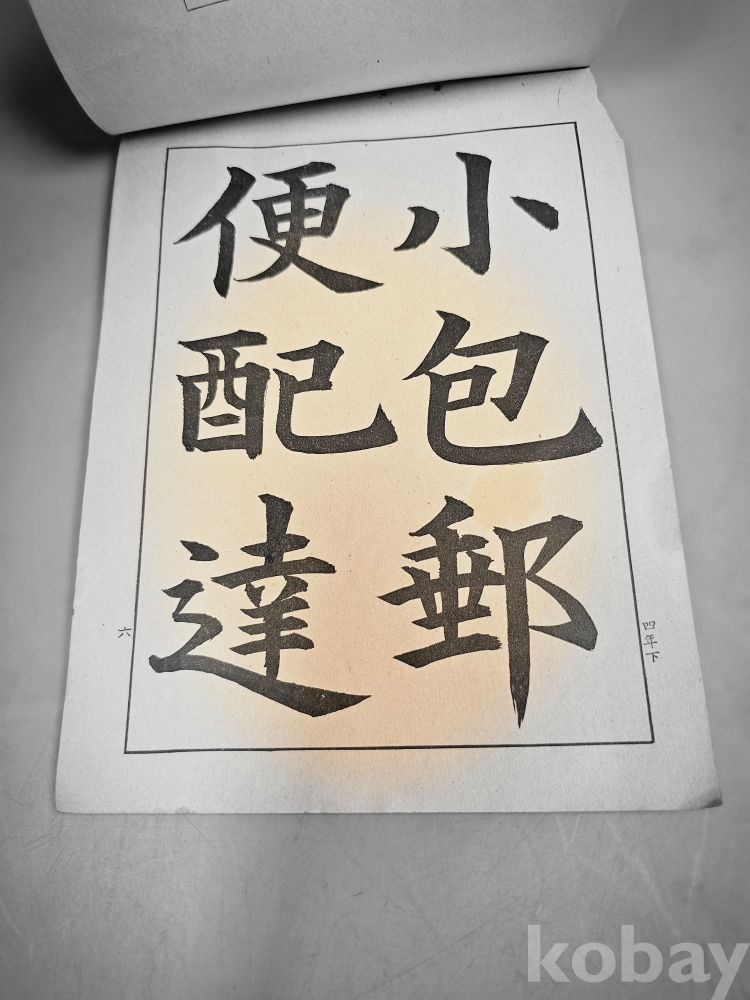 小包郵
便配達
四年下
六
kobay